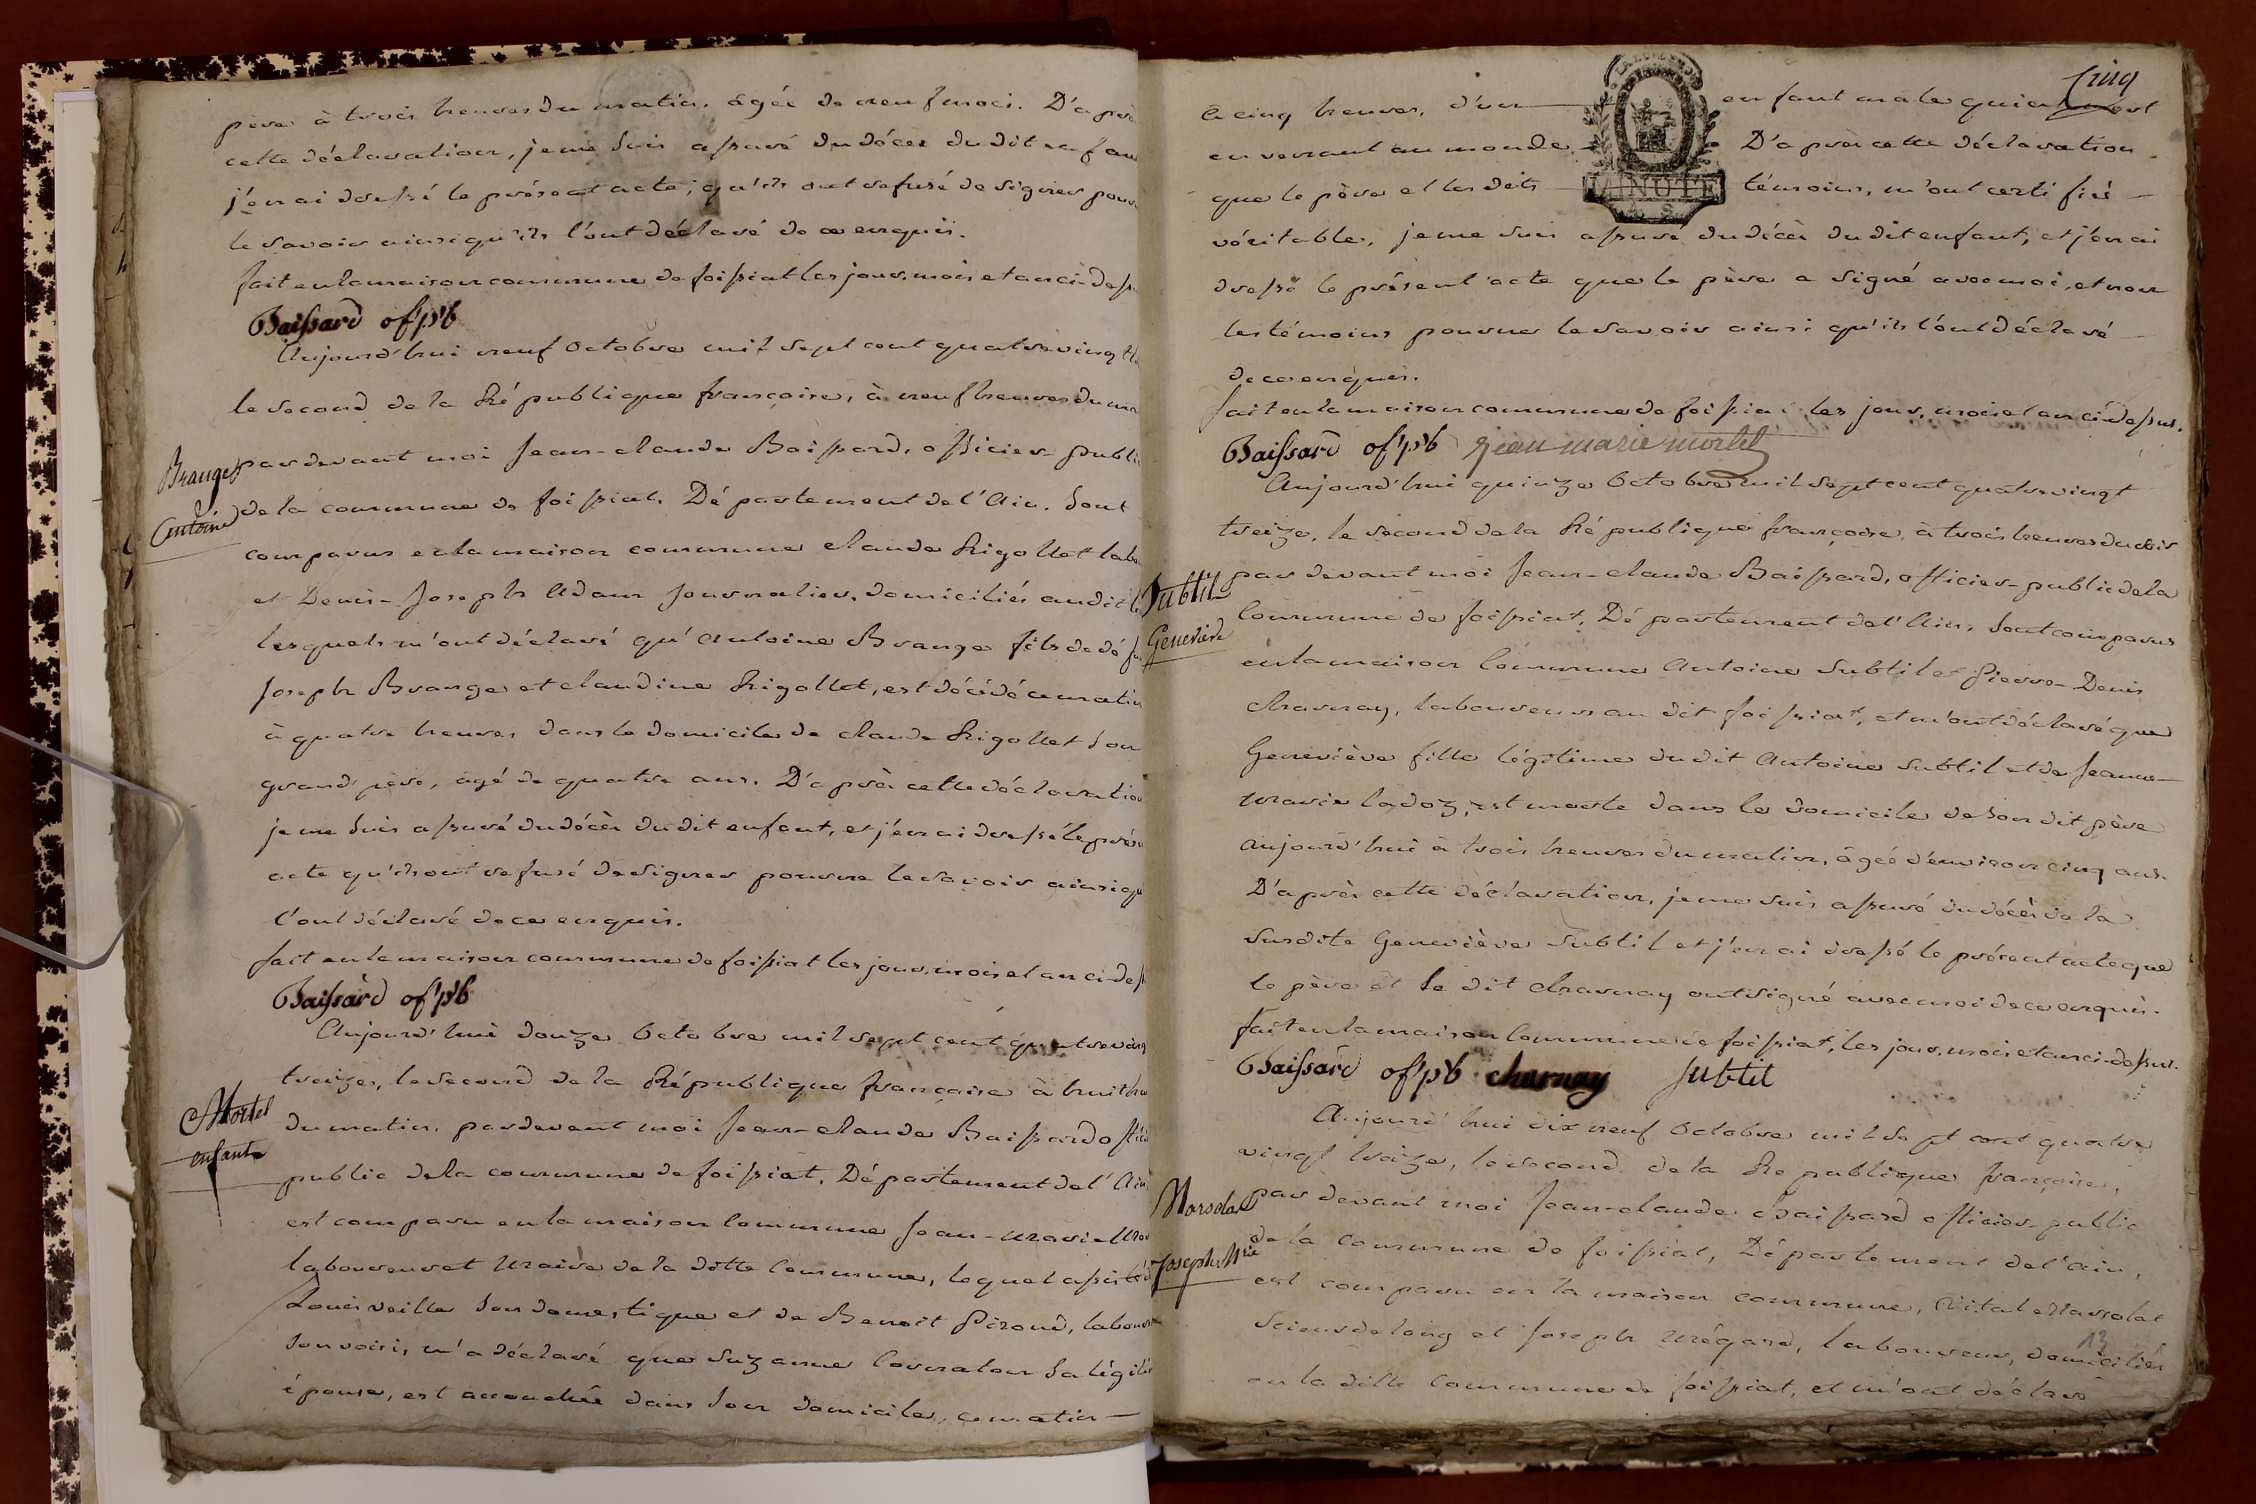 père à trois heures du matin, âgée de neuf mois. D'après
cette déclaration, je me suis assuré du décès du dit enfan
j'en ai dressé le présent acte, qu'ils ont refusé de signer pour
le savoir ainsi qu'ils l'ont déclaré de ce enquis.
fait en la maison commune de foissiat les jour, mois et an ci-dess
Baissard of. p'b
Aujourd'hui neuf Octobre mil sept cent quatrevingt
le second de la République françoise, à neuf heures du ma
Brange
Antoine
pardevant moi Jean-claude Baissard, officier publi
de la commune de foissiat, Département de l'Ain, sont
comparus en la maison commune claude Rigollet labo
et Denis-Joseph Adam journalier, domiciliés audit
lesquels m'ont déclaré qu'Antoine Brange fils de défu
Joseph Brange et claudine Rigollet, est décédé ce matin
à quatre heures dans le domicile de claude Rigollet son
grand'père, âgé de quatre ans. D'après cette déclaration
je me suis assuré du décès du dit enfant, et j'en ai dressé le prés
acte qu'ils ont refusé de signer pour ne le savoir ainsi qu
l'ont déclaré de ce enquis.
fait en la maison commune de foissiat les jour, mois et an ci-dess
Baissard of. p'b
Aujourd'hui douze Octobre mil sept cent quatrevingt
treize, le second de la République françoise à huit heu
Mortel
enfant
du matin, pardevant moi Jean-claude Baissard offici
public de la commune de foissiat, Département de l'Ain
est comparu en la maison commune Jean-marie Mor
laboureur et Maire de la ditte Commune, lequel assisté
Louis veille son domestique et de Benoit Piroud, labour
son voisin, m'a déclaré que Suzanne Cournalon sa légiti
épouse, est accouchée dans son domicile, ce matin
Cinq
à cinq heures, d'un enfant mâle qui est mort
en venant au monde D'après cette déclaration
MINUTE
que le père et les dits témoins, m'ont certifié
véritable, je me suis assuré du décès du dit enfant, et j'en ai
dressé le présent acte que le père a signé avec moi, et non
les témoins pour ne le savoir ainsi qu'ils l'ont déclaré
de ce enquis.
fait en la maison commune de foissiat les jour, mois et an ci-dessus.
Baissard of. p'b jean marie mortel
Aujourd'hui quinze Octobre mil sept cent quatrevingt
treize, le second de la République françoise, à trois heures du soir
Subtil
Geneviève
pardevant moi Jean-claude Baissard, officier-public de la
Commune de foissiat, Département de l'Ain, sont comparus
en la maison Commune Antoine Subtil et Pierre-Denis
Charnay, laboureurs au dit foissiat, et m'ont déclaré que
Geneviève fille légitime du dit Antoine Subtil et de Jeanne-
marie ladoz, est morte dans le domicile de son dit père
aujourd'hui à trois heures du matin, âgée d'environ cinq ans.
D'après cette déclaration, je me suis assuré du décès de la
susdite Geneviève Subtil et j'en ai dressé le présent acte que
le père et le dit Charnay ont signé avec moi de ce enquis.
fait en la maison Commune de foissiat, les jour, mois et an ci-dessus.
Baissard of. p'b charnay subtil
Aujourd'hui dix neuf Octobre mil sept cent quatre
vingt treize, le second de la République françoise,
Marsolat
Joseph Mrie
par devant moi Jean-claude Baissard officier-public
de la commune de foissiat, Département de l'ain,
est comparu en la maison commune, Vital Marsolat
scieur de long et Joseph Mégard, laboureur, domiciliés
en la ditte Commune de foissiat, et m'ont déclaré
13